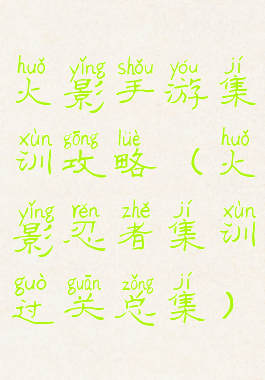 huǒ yǐng shǒu yóu jí
火影手游集
xùn gōng lüè huǒ
训攻略（火
yǐng rěn zhě jí xùn
影忍者集训
guò guān zǒng jí
过关总集）